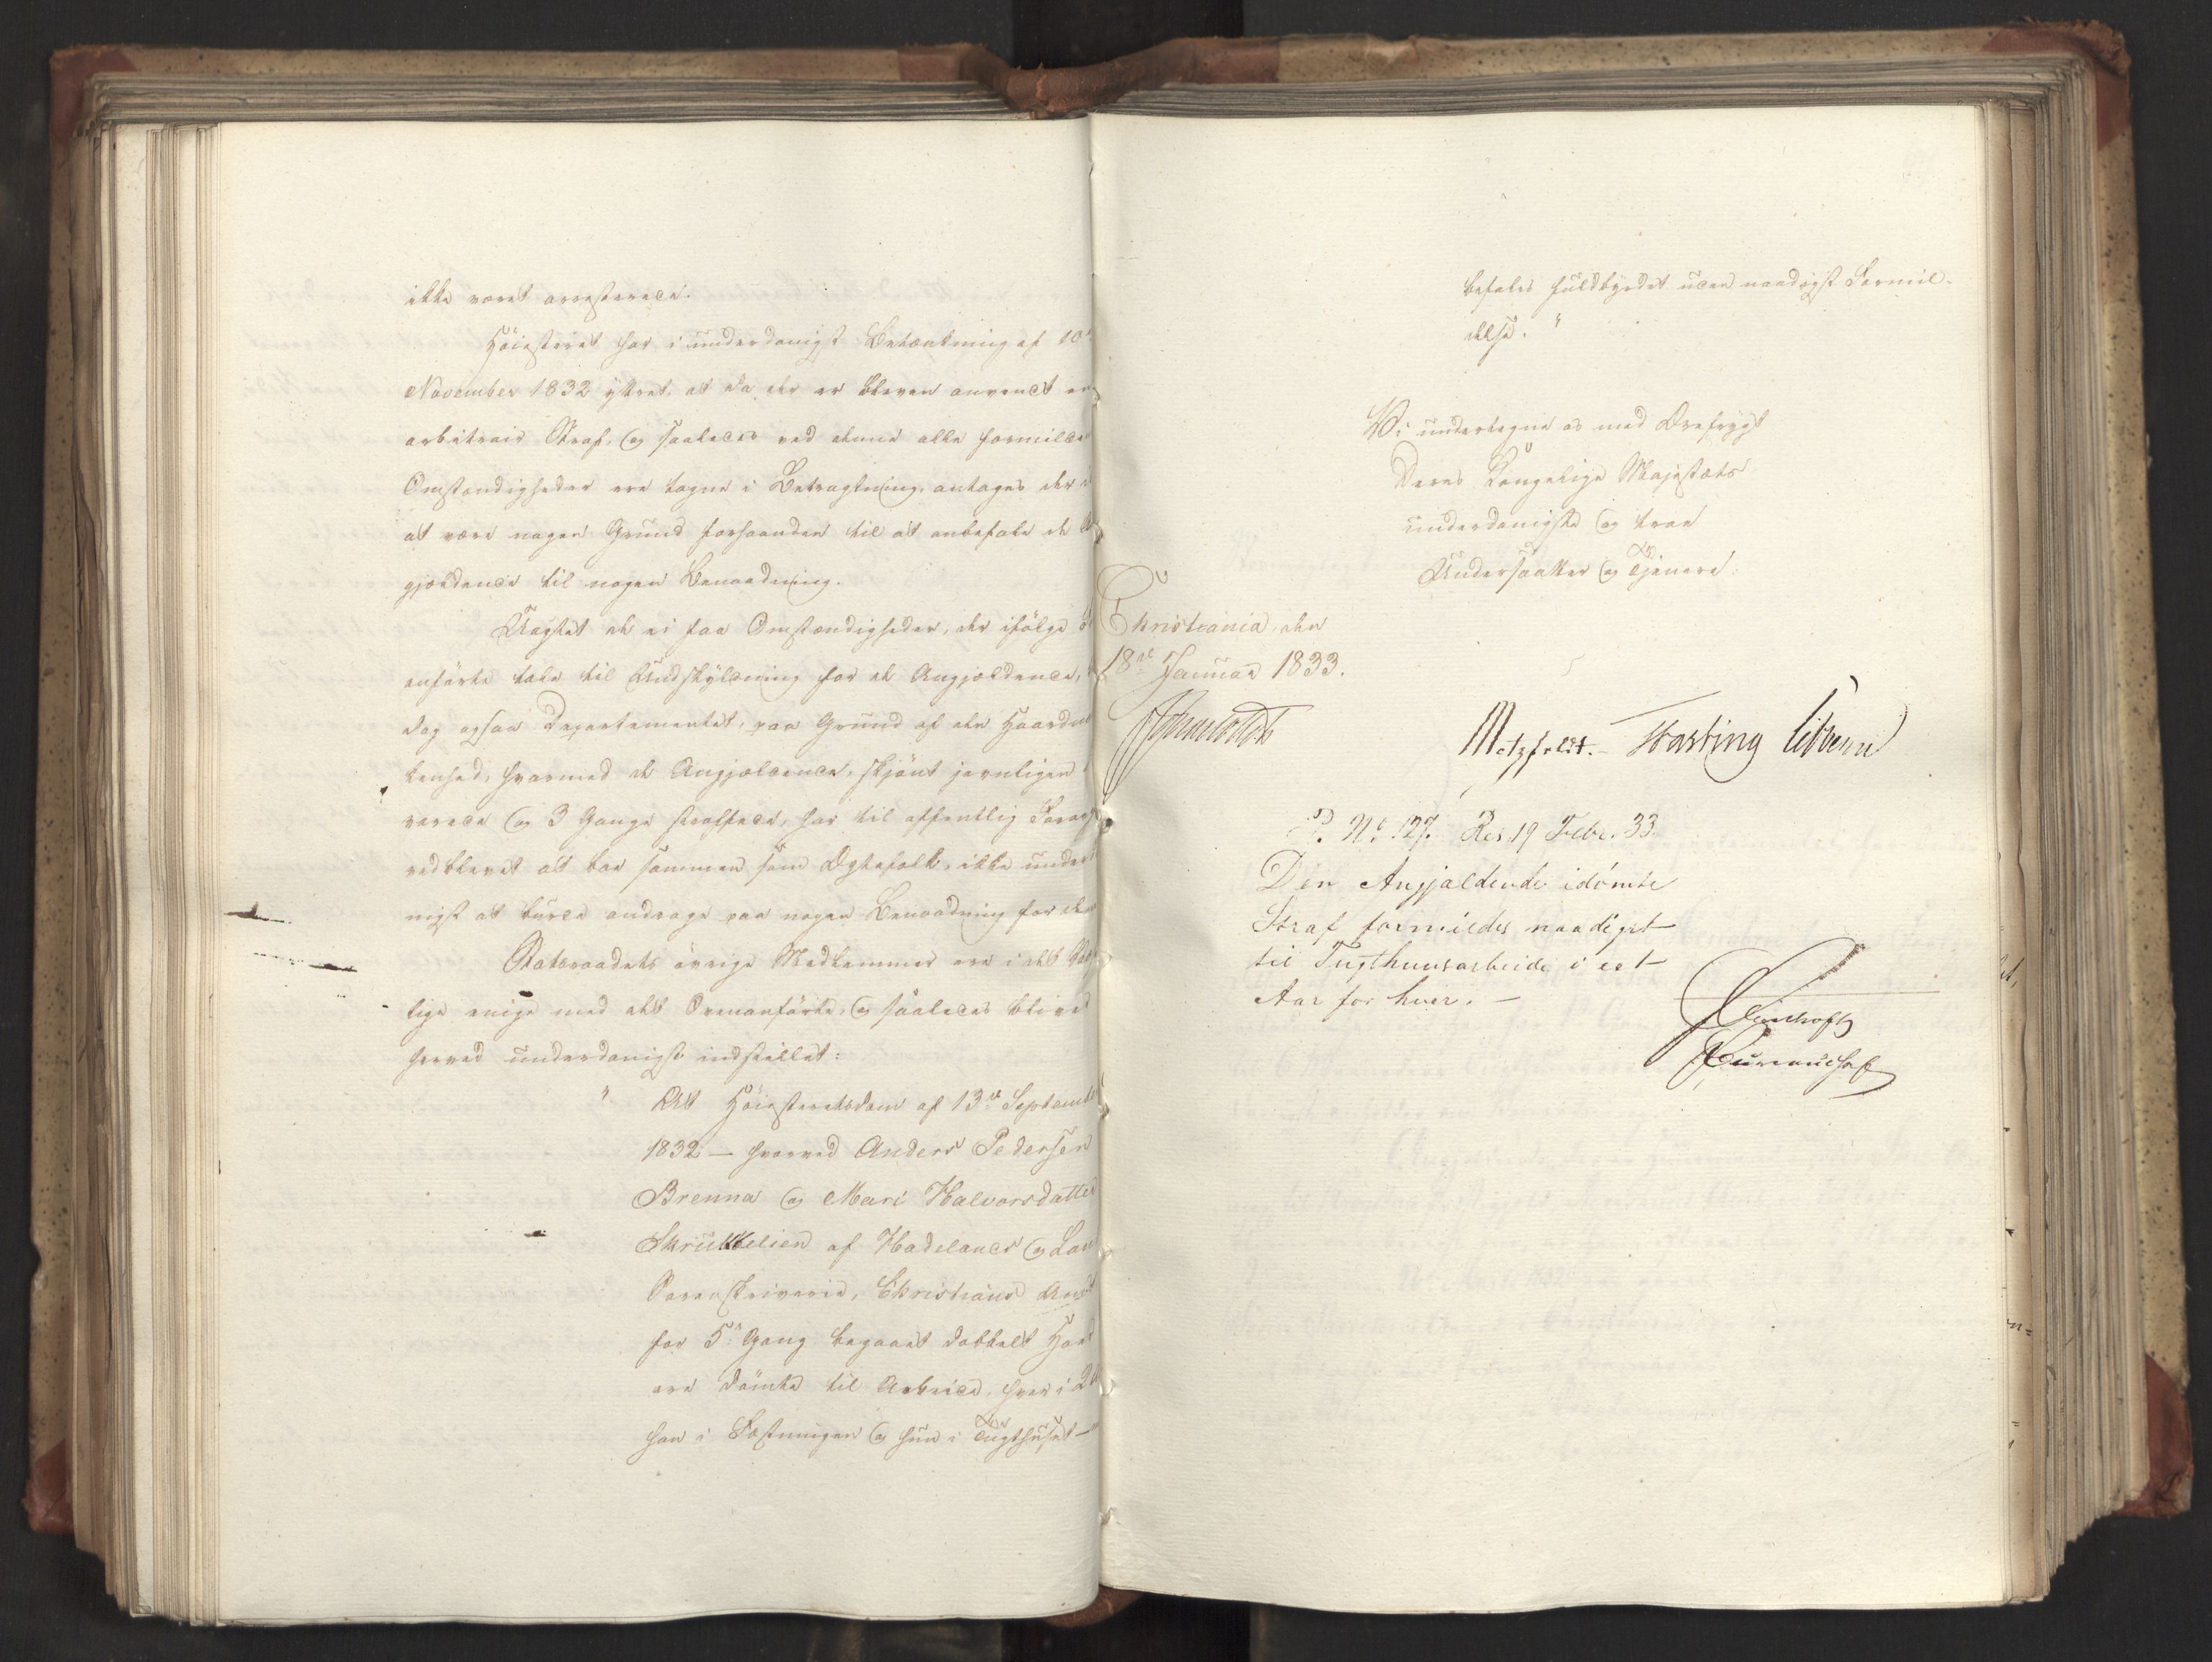 ikke været arresterede.
Höiesteret har i underdanigst Betænkning af 10de
November 1832 yttret, at da der er bleven anvendt en
arbitrair Straf, og saaledes ved denne alle formildende
Omstændigheder ere tagne i Betragtning, antages der ei
at være nogen Grund forhaanden til at anbefale de
gjældende til nogen Benaadning.
Uagtet de ei faa Omstændigheder, der ifölge
anförte tale til Undskyldning for de Angjældende,
dog ogsaa Departementet, paa Grund af den Haardnak-
kenhed, hvormed de Angjældende, skjönt jevnligen
varede og 3 Gange straffede, har til offentlig Forargelse
vedblevet at boe sammen som Ægtefolk, ikke underda-
nigst at burde andrage paa nogen Benaadning for dem
Statsraadets övrige Medlemmer ere i det Væsent-
lige enige med det Ovenanförte, og saaledes bliver
herved underdanigst indstillet:
" At Höiesteretsdom af 13de September
1832 — hvorved Anders Pedersen
Brenna og Mari Halvorsdatter
Skrukkelien af Hadelands og Lands
Sorenskriverie, Christians Amt
for 5te Gang begaaet dobbelt Hoer
ere dömte til Arbeide, hver i 2
han i Fæstningen og hun i Tugthuset —
befales fuldbyrdet uden naadigst Formil-
delse. "
Vi undertegne os med Ærefrygt
Deres Kongelige Majestæts
underdanigste og troe
Undersaatter og Tjenere:
Christiania, den
18de Januar 1833.
Metzfeldt. Fasting Vibbern
P. No. 127. Res 19 Febr. 33.
Den Angjældende idömte
Straf formildes naadigst
til Tugthuusarbeide i eet
Aar for hver. —
Bureauchef